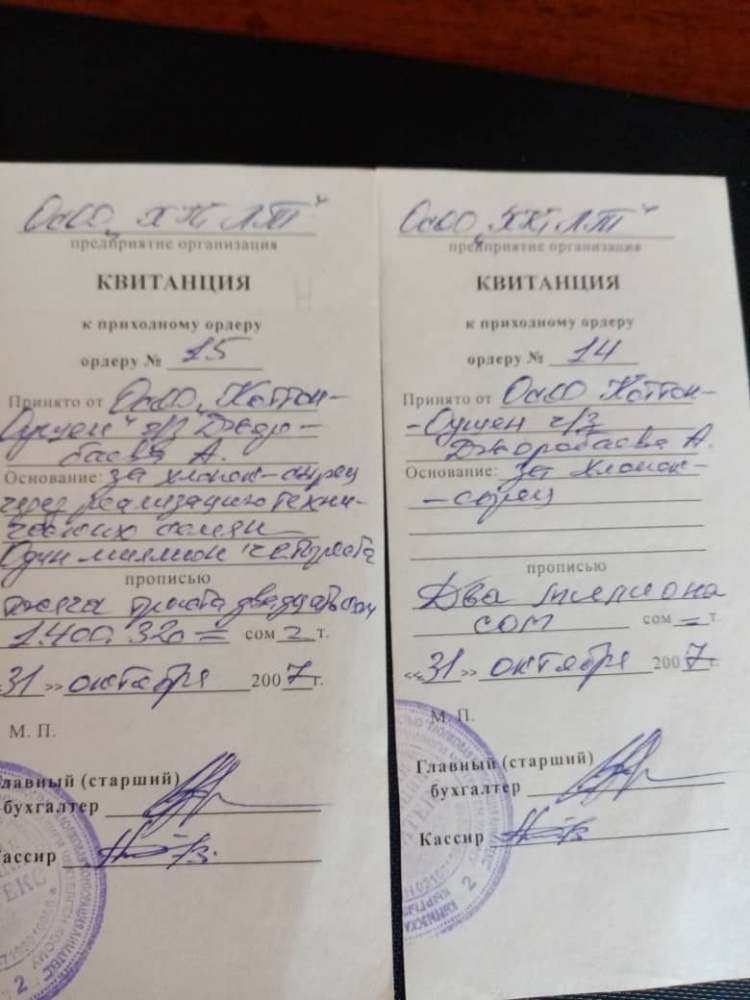 ОсОО „ХК ЛТ"
предприятие организация
КВИТАНЦИЯ
к приходному ордеру
ордеру № 15
Принято от ОсОО „Коттон-
Сушен" ч/з Джоро-
баева А.
Основание: за хлопок-сырец
через реализацию техни-
ческих семян
Один миллион четыреста
прописью
тысяч триста двадцать сом
1.400.320 = сом = т.
«31» октября 2007 г.
М. П.
Главный (старший)
бухгалтер
Кассир
2
ОсОО „ХК ЛТ"
предприятие организация
КВИТАНЦИЯ
к приходному ордеру
ордеру № 14
Принято от ОсОО Коттон-
-Сушен ч/з
Джоробаева А.
Основание: за хлопок-
-сырец
прописью
Два миллиона
сом сом = т.
«31» октября 2007 г.
М. П.
Главный (старший)
бухгалтер
Кассир
2